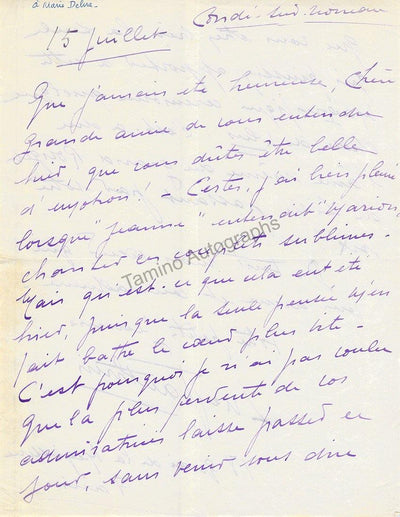 à Marie Delna
Condé-sur-Noireau
15 Juillet
Que j'aurais été heureuse, Chère
Grande amie de vous entendre
hier que vous dûtes être belle
d'émotion! - Certes, j'ai bien pleuré
lorsque "Jeanne" entendait "Marion"
chanter ces couplets sublimes -
Tamino Autographs
Mais qu'est-ce que cela eut été
hier, puisque la seule pensée m'en
fait battre le cœur plus vite -
C'est pourquoi je n'ai pas voulu
que la plus fervente de vos
admiratrices laisse passer ce
jour, sans venir vous dire